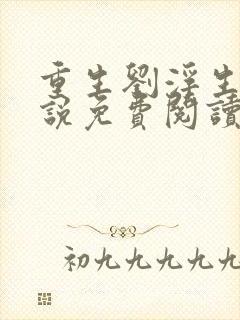 重生劉浮生
說免費閱讀
初九九九九九